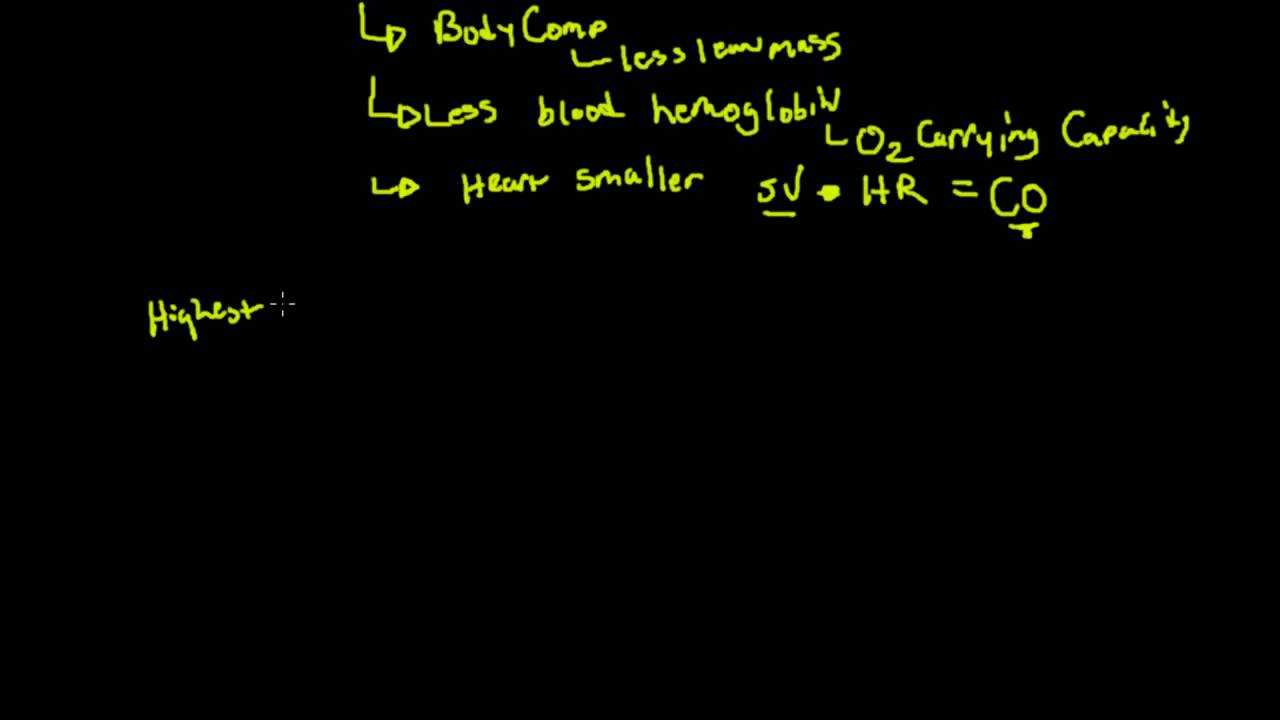 Body Comp
less lean mass
Less blood hemoglobin
O2 Carrying Capacity
Heart smaller SV • HR = CO
Highest